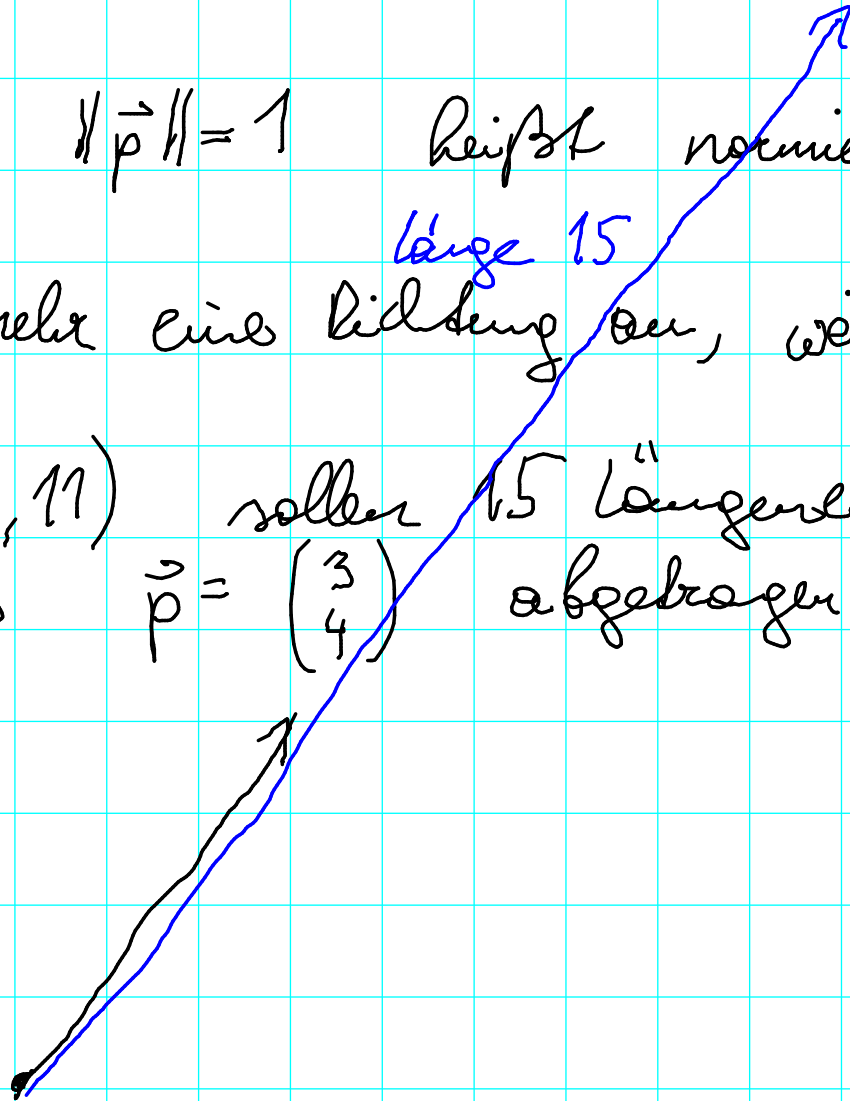 ‖p⃗‖ = 1 heißt normie
länge 15
mehr eine Richtung an, we
, 11) sollen 15 Längene
p⃗ = (3 4) abgetragen